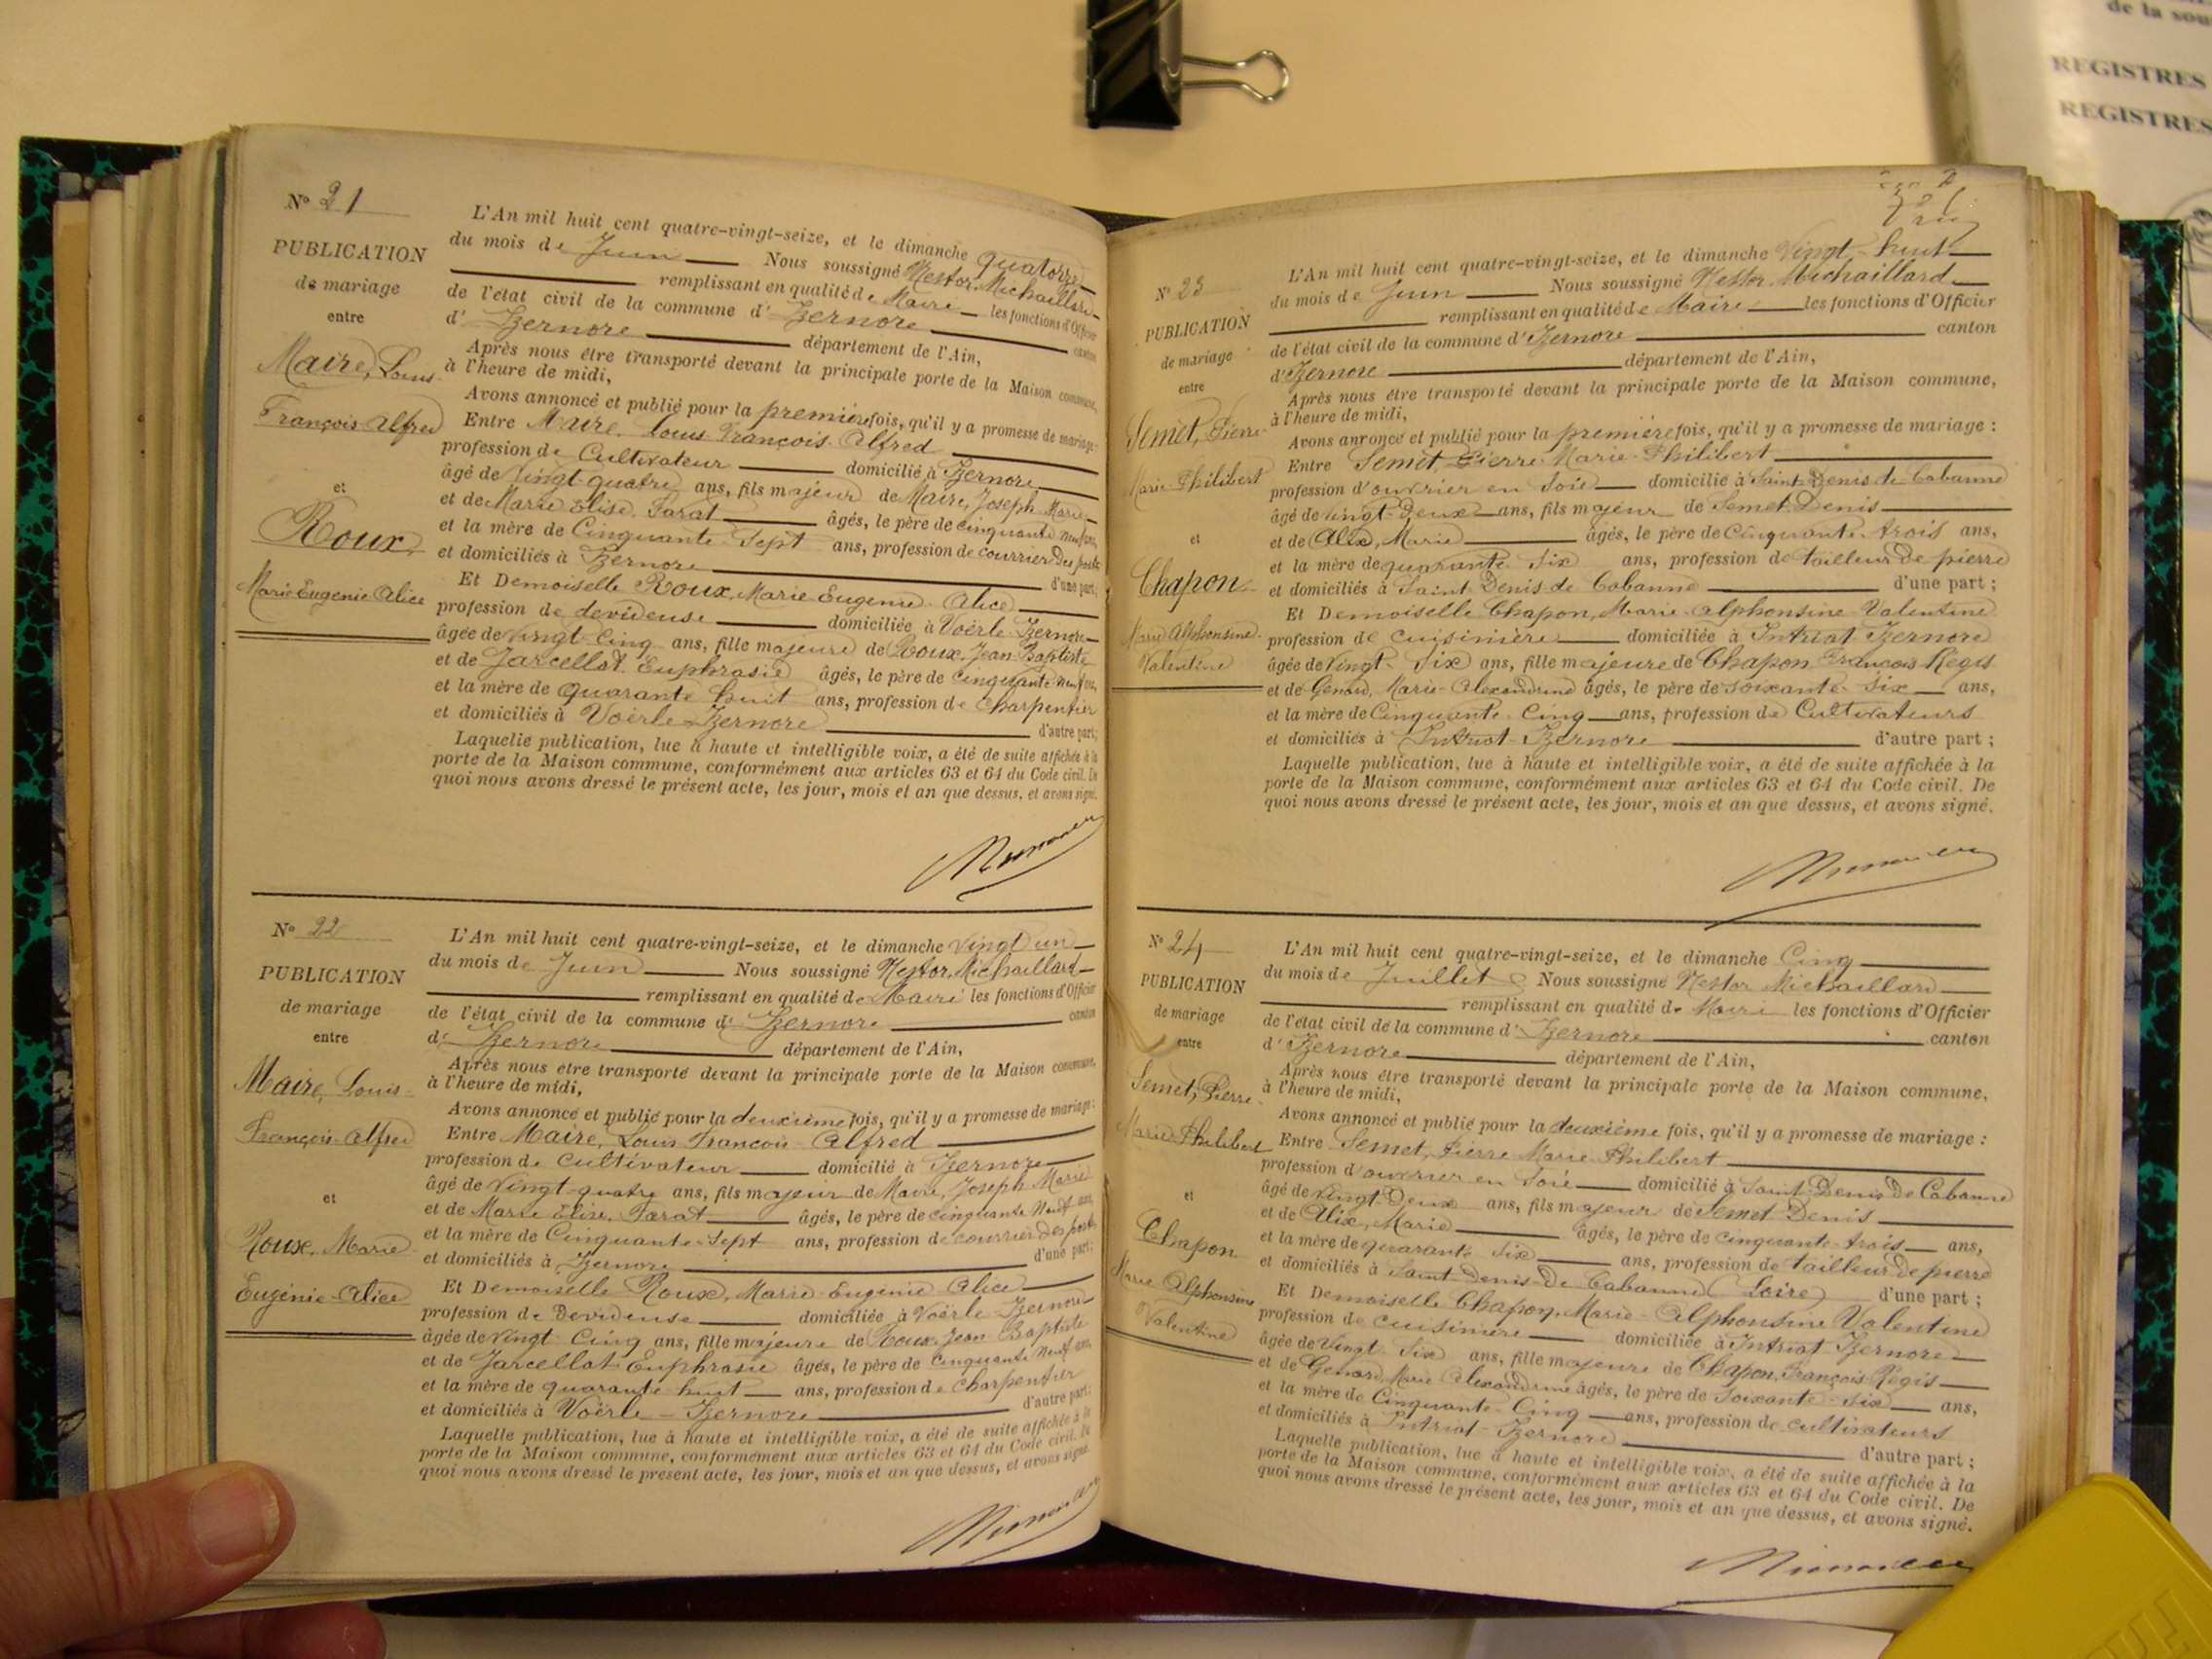 N° 21
PUBLICATION
de mariage
entre
Maire, Louis
François Alfred
et
Roux
Marie Eugenie Alice
L'An mil huit cent quatre-vingt-seize, et le dimanche quatorze
du mois de Juin Nous soussigné Nestor Michaillard
remplissant en qualité de Maire les fonctions d'Officier
de l'état civil de la commune d' Izernore canton
d' Izernore département de l'Ain,
Après nous être transporté devant la principale porte de la Maison commune,
à l'heure de midi,
Avons annoncé et publié pour la première fois, qu'il y a promesse de mariage:
Entre Maire, Louis François Alfred
profession de Cultivateur domicilié à Izernore
âgé de vingt-quatre ans, fils majeur de Maire, Joseph Marie
et de Marie Elise, Tarat âgés, le père de cinquante neuf ans,
et la mère de Cinquante Sept ans, profession de courrier des postes
et domiciliés à Izernore d'une part;
Et Demoiselle Roux, Marie Eugenie Alice
profession de devideuse domiciliée à Voërle-Izernore
âgée de vingt Cinq ans, fille majeure de Roux, Jean Baptiste
et de Jarcellat, Euphrasie âgés, le père de cinquante neuf ans,
et la mère de quarante huit ans, profession de Charpentier
et domiciliés à Voërle-Izernore d'autre part;
Laquelle publication, lue à haute et intelligible voix, a été de suite affichée à la
porte de la Maison commune, conformément aux articles 63 et 64 du Code civil. De
quoi nous avons dressé le présent acte, les jour, mois et an que dessus, et avons signé.
N° 22
PUBLICATION
de mariage
entre
Maire, Louis
François-Alfred
et
Roux, Marie
Eugénie-Alice
L'An mil huit cent quatre-vingt-seize, et le dimanche Vingt un
du mois de Juin Nous soussigné Nestor, Michaillard
remplissant en qualité de Maire les fonctions d'Officier
de l'état civil de la commune d' Izernore canton
d' Izernore département de l'Ain,
Après nous être transporté devant la principale porte de la Maison commune,
à l'heure de midi,
Avons annoncé et publié pour la deuxième fois, qu'il y a promesse de mariage:
Entre Maire, Louis François Alfred
profession de Cultivateur domicilié à Izernore
âgé de Vingt-quatre ans, fils majeur de Maire, Joseph Marie
et de Marie Elise, Tarat âgés, le père de cinquante Neuf ans,
et la mère de Cinquante-Sept ans, profession de courrier des postes
et domiciliés à Izernore d'une part;
Et Demoiselle Roux, Marie Eugenie Alice
profession de Devideuse domiciliée à Voërle Izernore
âgée de Vingt Cinq ans, fille majeure de Roux, Jean Baptiste
et de Jarcellat Euphrasie âgés, le père de Cinquante Neuf ans,
et la mère de quarante huit ans, profession de Charpentier
et domiciliés à Voërle-Izernore d'autre part;
Laquelle publication, lue à haute et intelligible voix, a été de suite affichée à la
porte de la Maison commune, conformément aux articles 63 et 64 du Code civil. De
quoi nous avons dressé le présent acte, les jour, mois et an que dessus, et avons signé.
N° 23
PUBLICATION
de mariage
entre
Semet, Pierre
Marie Philibert
et
Chapon
Marie Alphonsine
Valentine
L'An mil huit cent quatre-vingt-seize, et le dimanche Vingt-huit
du mois de Juin Nous soussigné Nestor Michaillard
remplissant en qualité de Maire les fonctions d'Officier
de l'état civil de la commune d' Izernore canton
d' Izernore département de l'Ain,
Après nous être transporté devant la principale porte de la Maison commune,
à l'heure de midi,
Avons annoncé et publié pour la première fois, qu'il y a promesse de mariage :
Entre Semet, Pierre Marie-Philibert
profession d'ouvrier en Soie domicilié à Saint Denis de Cabanne
âgé de Vingt-Deux ans, fils majeur de Semet Denis
et de Alix, Marie âgés, le père de Cinquante-trois ans,
et la mère de quarante Six ans, profession de tailleur de pierre
et domiciliés à Saint Denis de Cabanne d'une part ;
Et Demoiselle Chapon, Marie-Alphonsine Valentine
profession de cuisinière domiciliée à Intriat Izernore
âgée de Vingt-Six ans, fille majeure de Chapon François Régis
et de Genard, Marie-Alexandrine âgés, le père de Soixante-Six ans,
et la mère de Cinquante Cinq ans, profession de Cultivateurs
et domiciliés à Intriat-Izernore d'autre part ;
Laquelle publication, lue à haute et intelligible voix, a été de suite affichée à la
porte de la Maison commune, conformément aux articles 63 et 64 du Code civil. De
quoi nous avons dressé le présent acte, les jour, mois et an que dessus, et avons signé.
N° 24
PUBLICATION
de mariage
entre
Semet, Pierre
Marie Philibert
et
Chapon
Marie Alphonsine
Valentine
L'An mil huit cent quatre-vingt-seize, et le dimanche Cinq
du mois de Juillet Nous soussigné Nestor Michaillard
remplissant en qualité de Maire les fonctions d'Officier
de l'état civil de la commune d' Izernore canton
d' Izernore département de l'Ain,
Après nous être transporté devant la principale porte de la Maison commune,
à l'heure de midi,
Avons annoncé et publié pour la deuxième fois, qu'il y a promesse de mariage :
Entre Semet, Pierre Marie Philibert
profession d'ouvrier en Soie domicilié à Saint-Denis De Cabanne
âgé de Vingt-Deux ans, fils majeur de Semet Denis
et de Alix, Marie âgés, le père de Cinquante-trois ans,
et la mère de quarante Six ans, profession de tailleur de pierre
et domiciliés à Saint-Denis-De Cabanne (Loire) d'une part ;
Et Demoiselle Chapon, Marie-Alphonsine Valentine
profession de cuisinière domiciliée à Intriat Izernore
âgée de Vingt Six ans, fille majeure de Chapon, François-Régis
et de Genard, Marie Alexandrine âgés, le père de Soixante-Six ans,
et la mère de Cinquante-Cinq ans, profession de cultivateurs
et domiciliés à Intriat-Izernore d'autre part ;
Laquelle publication, lue à haute et intelligible voix, a été de suite affichée à la
porte de la Maison commune, conformément aux articles 63 et 64 du Code civil. De
quoi nous avons dressé le présent acte, les jour, mois et an que dessus, et avons signé.
de la sou
REGISTRES
REGISTRES